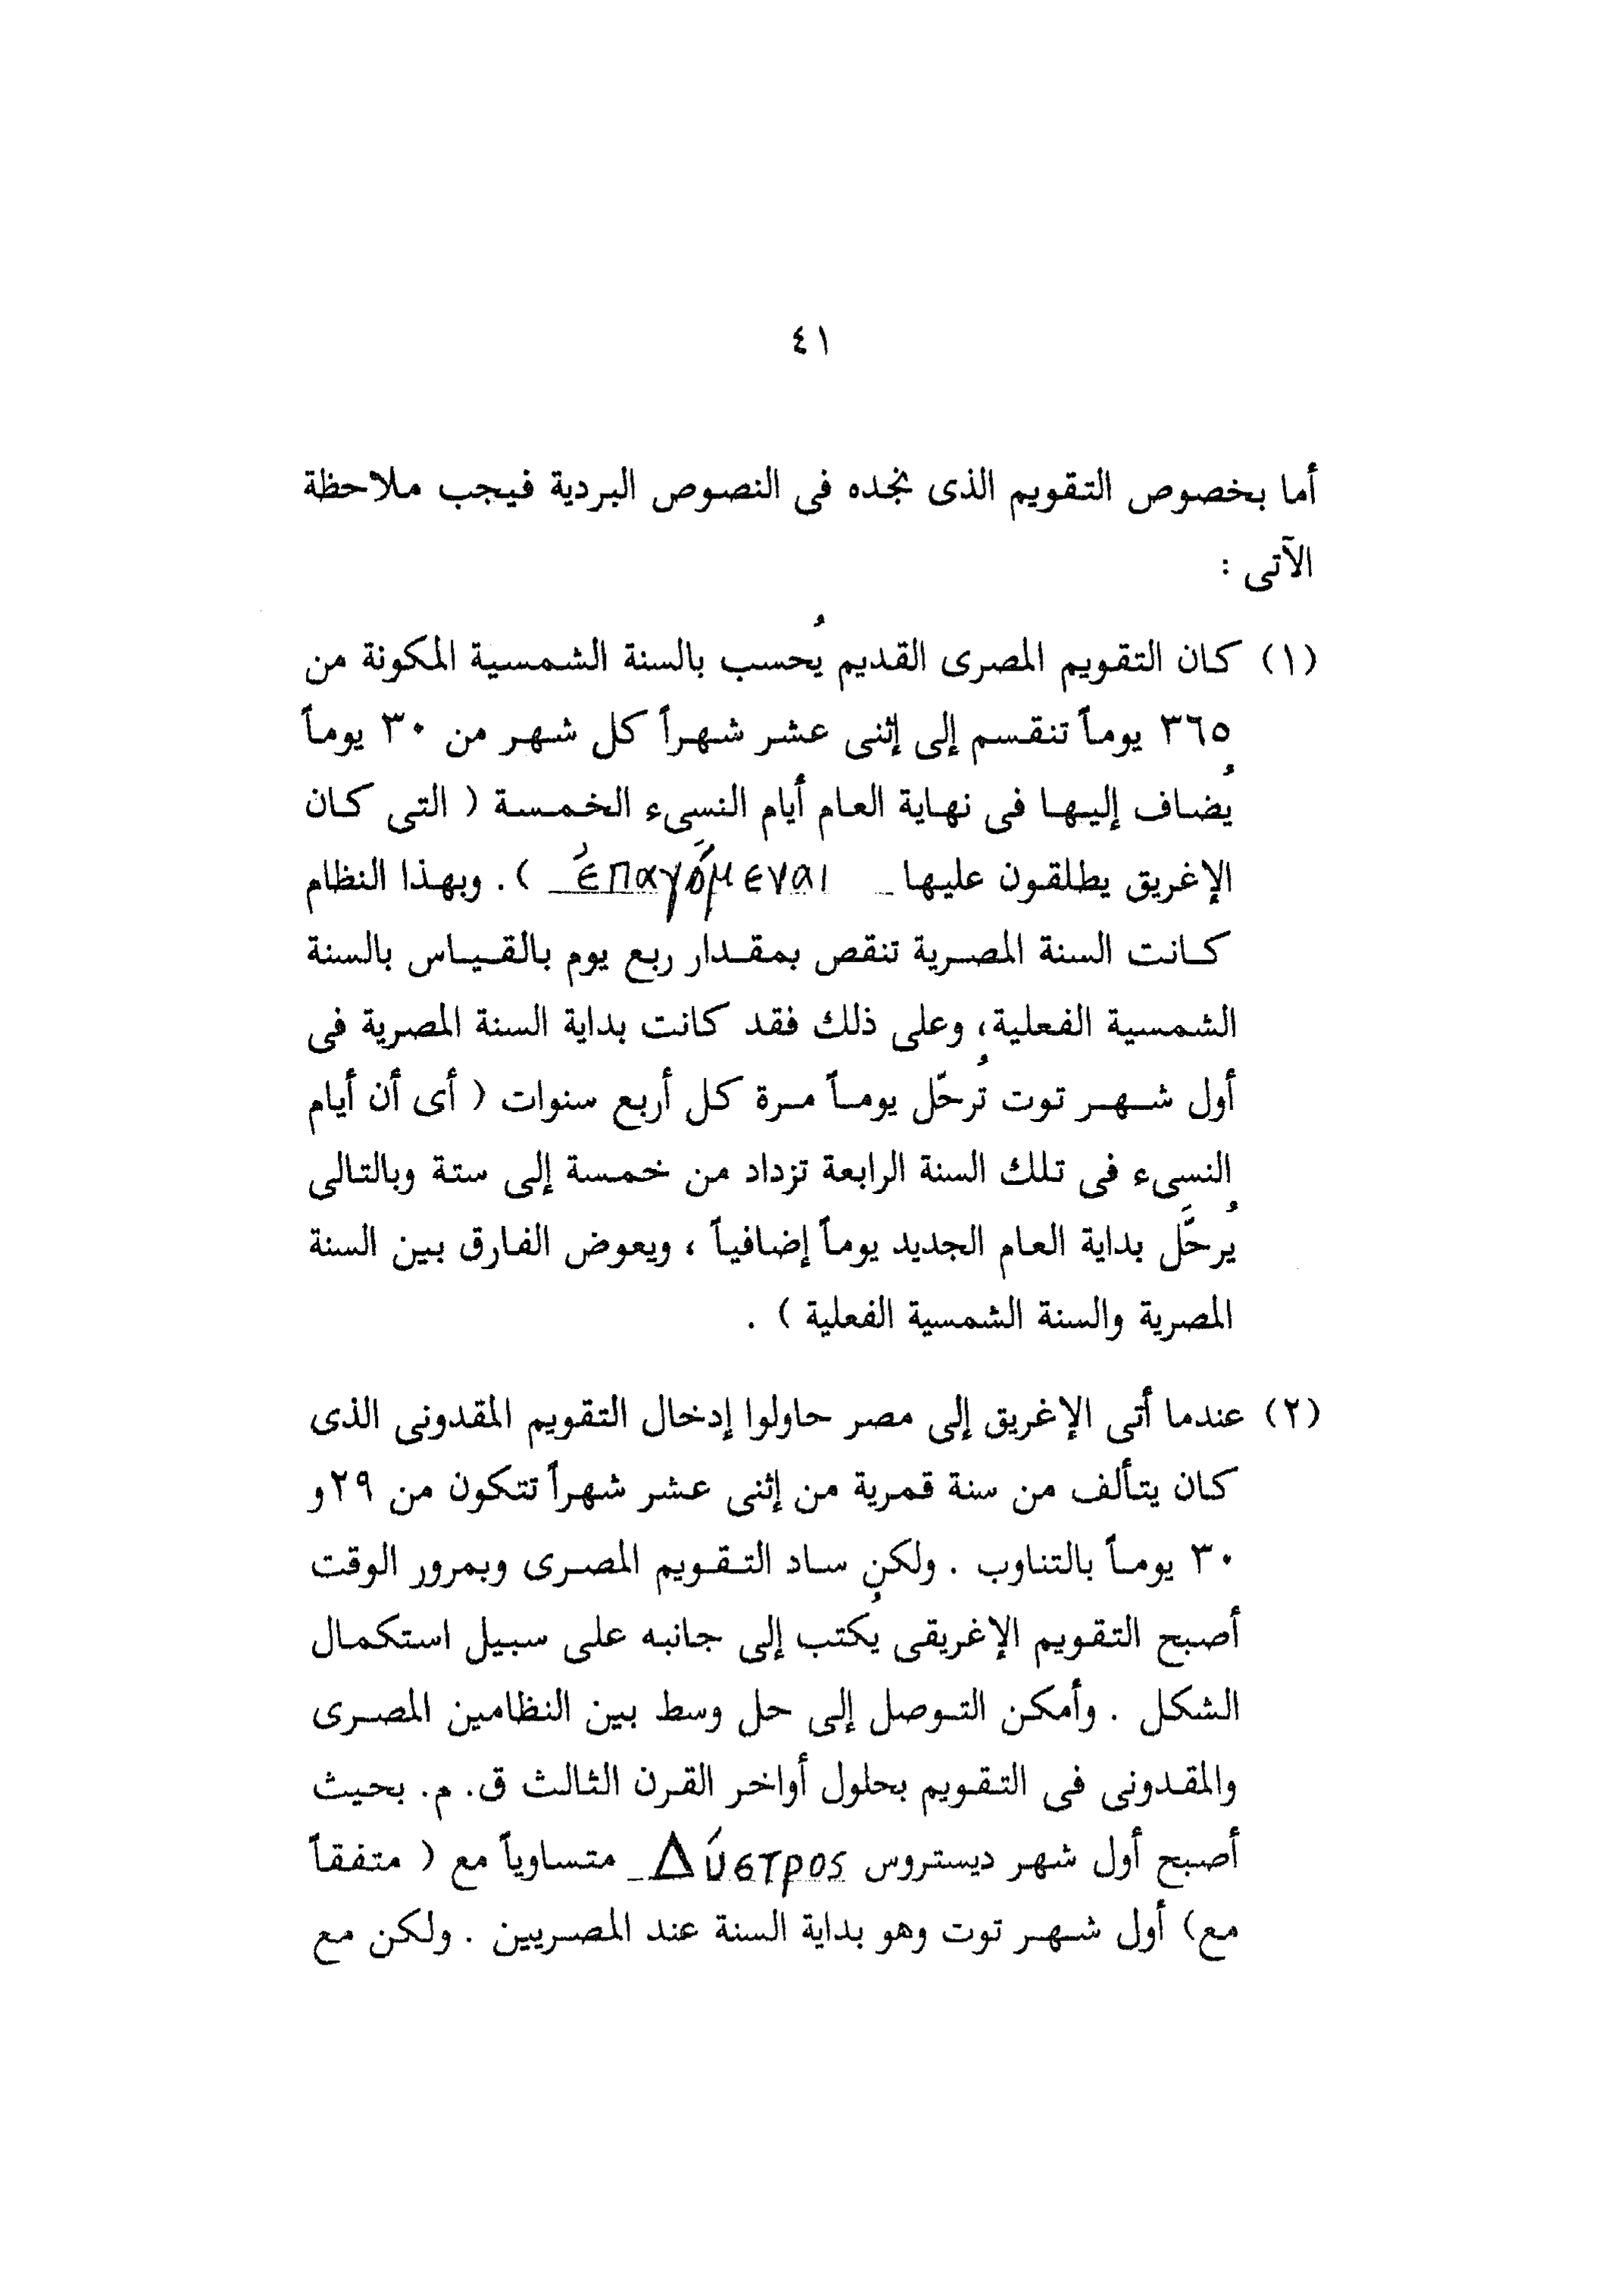 ٤١
أما بخصوص التقويم الذى نجده فى النصوص البردية فيجب ملاحظة
الآتى :
(١) كان التقويم المصرى القديم يُحسب بالسنة الشمسية المكونة من
٣٦٥ يوماً تنقسم إلى إثنى عشر شهراً كل شهر من ٣٠ يوماً
يُضاف إليها فى نهاية العام أيام النسِىء الخمسة ( التى كان
الإغريق يطلقون عليها ἐπαγόμεναι ) . وبهذا النظام
كانت السنة المصرية تنقص بمقدار ربع يوم بالقياس بالسنة
الشمسية الفعلية، وعلى ذلك فقد كانت بداية السنة المصرية فى
أول شهر توت تُرحّل يوماً مرة كل أربع سنوات ( أى أن أيام
النسىء فى تلك السنة الرابعة تزداد من خمسة إلى ستة وبالتالى
يُرحَّل بداية العام الجديد يوماً إضافياً ، ويعوض الفارق بين السنة
المصرية والسنة الشمسية الفعلية ) .
(٢) عندما أتى الإغريق إلى مصر حاولوا إدخال التقويم المقدونى الذى
كان يتألف من سنة قمرية من إثنى عشر شهراً تتكون من ٢٩ و
٣٠ يوماً بالتناوب . ولكن ساد التقويم المصرى وبمرور الوقت
أصبح التقويم الإغريقى يُكتب إلى جانبه على سبيل استكمال
الشكل . وأمكن التوصل إلى حل وسط بين النظامين المصرى
والمقدونى فى التقويم بحلول أواخر القرن الثالث ق. م. بحيث
أصبح أول شهر ديستروس Δύστρος متساوياً مع ( متفقاً
مع) أول شهر توت وهو بداية السنة عند المصريين . ولكن مع